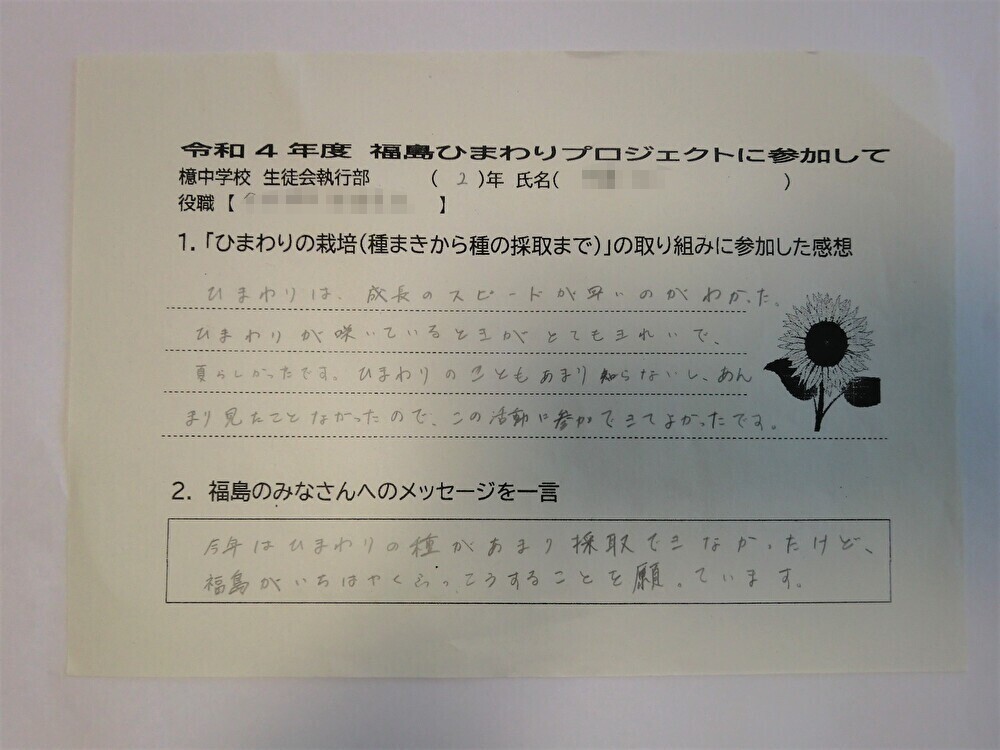 令和４年度 福島ひまわりプロジェクトに参加して
檍中学校 生徒会執行部 （ 2 ）年 氏名（ ）
役職【 】
１．「ひまわりの栽培（種まきから種の採取まで）」の取り組みに参加した感想
ひまわりは、成長のスピードが早いのがわかった。
ひまわりが咲いているときがとてもきれいで、
夏らしかったです。ひまわりのこともあまり知らないし、あん
まり見たことなかったので、この活動に参加できてよかったです。
２．福島のみなさんへのメッセージを一言
今年はひまわりの種があまり採取できなかったけど、
福島がいちはやくふっこうすることを願っています。